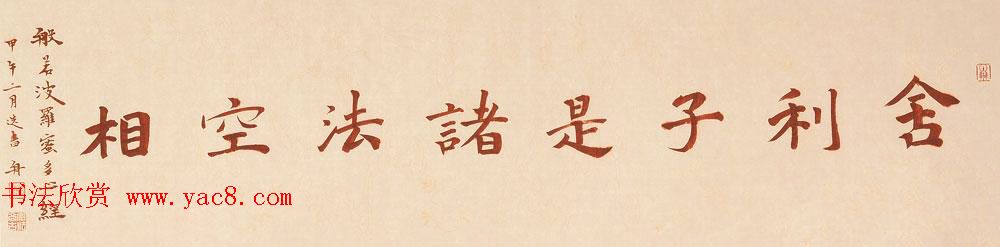 舍利子是諸法空相
般若波羅蜜多心經
甲午二月迻書舟
书法欣赏 www.yac8.com